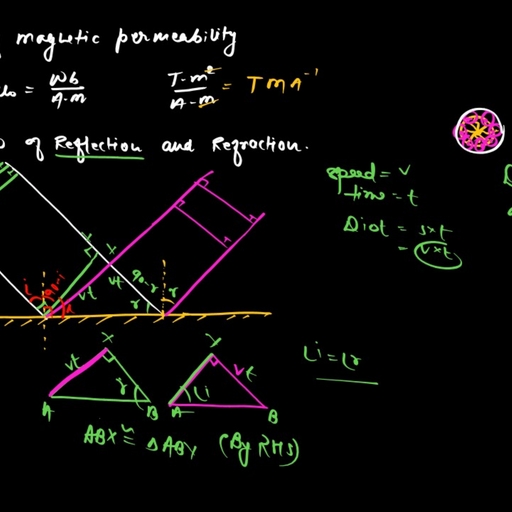 magnetic permeability
= Wb/A-m    T-m²/A-m = TMA⁻¹
of Reflection and Refraction.
speed = v
time = t
Dist = s×t
= v×t
i 90-i
x
vt vt 90-r r
r
Li = Lr
x y
vt r Li vt
A B A B
ABX ≅ △ABY (By RHS)